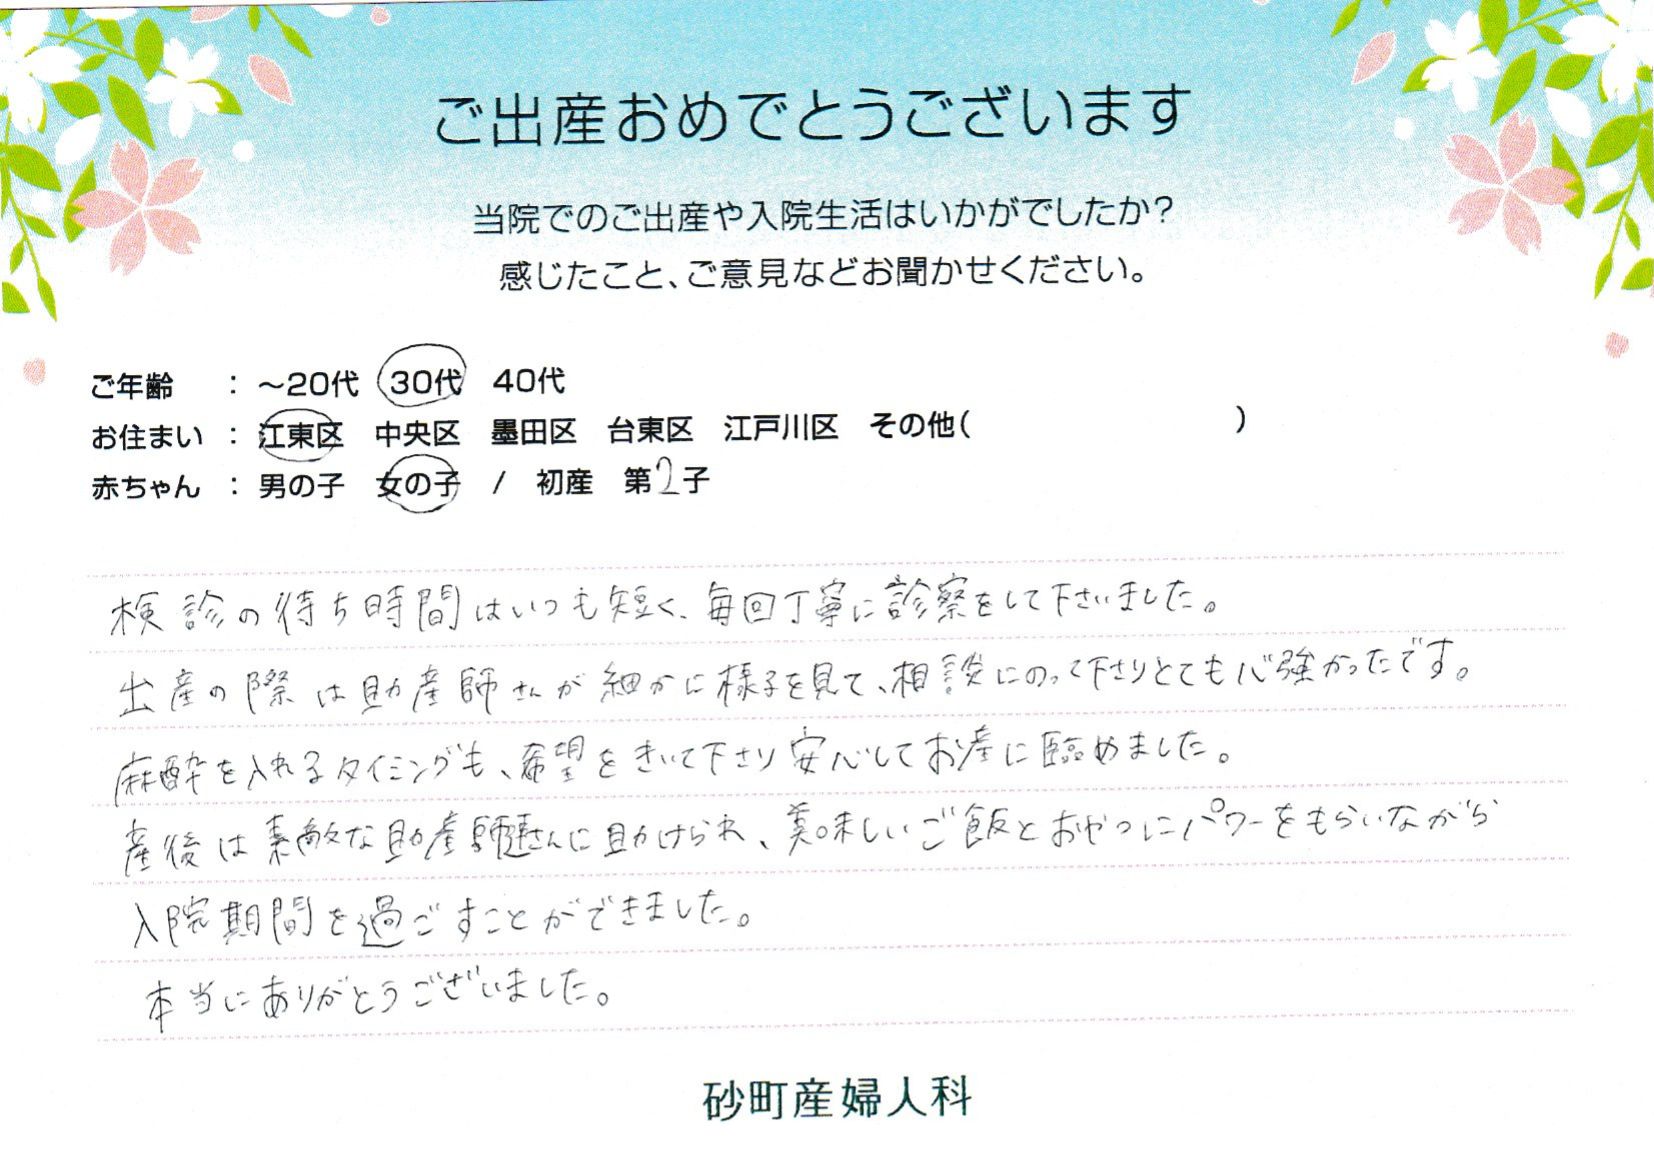 ご出産おめでとうございます
当院でのご出産や入院生活はいかがでしたか?
感じたこと、ご意見などお聞かせください。
ご年齢 : ~20代 30代 40代
お住まい : 江東区 中央区 墨田区 台東区 江戸川区 その他( )
赤ちゃん : 男の子 女の子 / 初産 第2子
検診の待ち時間はいつも短く、毎回丁寧に診察をして下さいました。
出産の際は助産師さんが細かに様子を見て、相談にのって下さりとても心強かったです。
麻酔を入れるタイミングも、希望をきいて下さり安心してお産に臨めました。
産後は素敵な助産師さんに助けられ、美味しいご飯とおやつにパワーをもらいながら
入院期間を過ごすことができました。
本当にありがとうございました。
砂町産婦人科